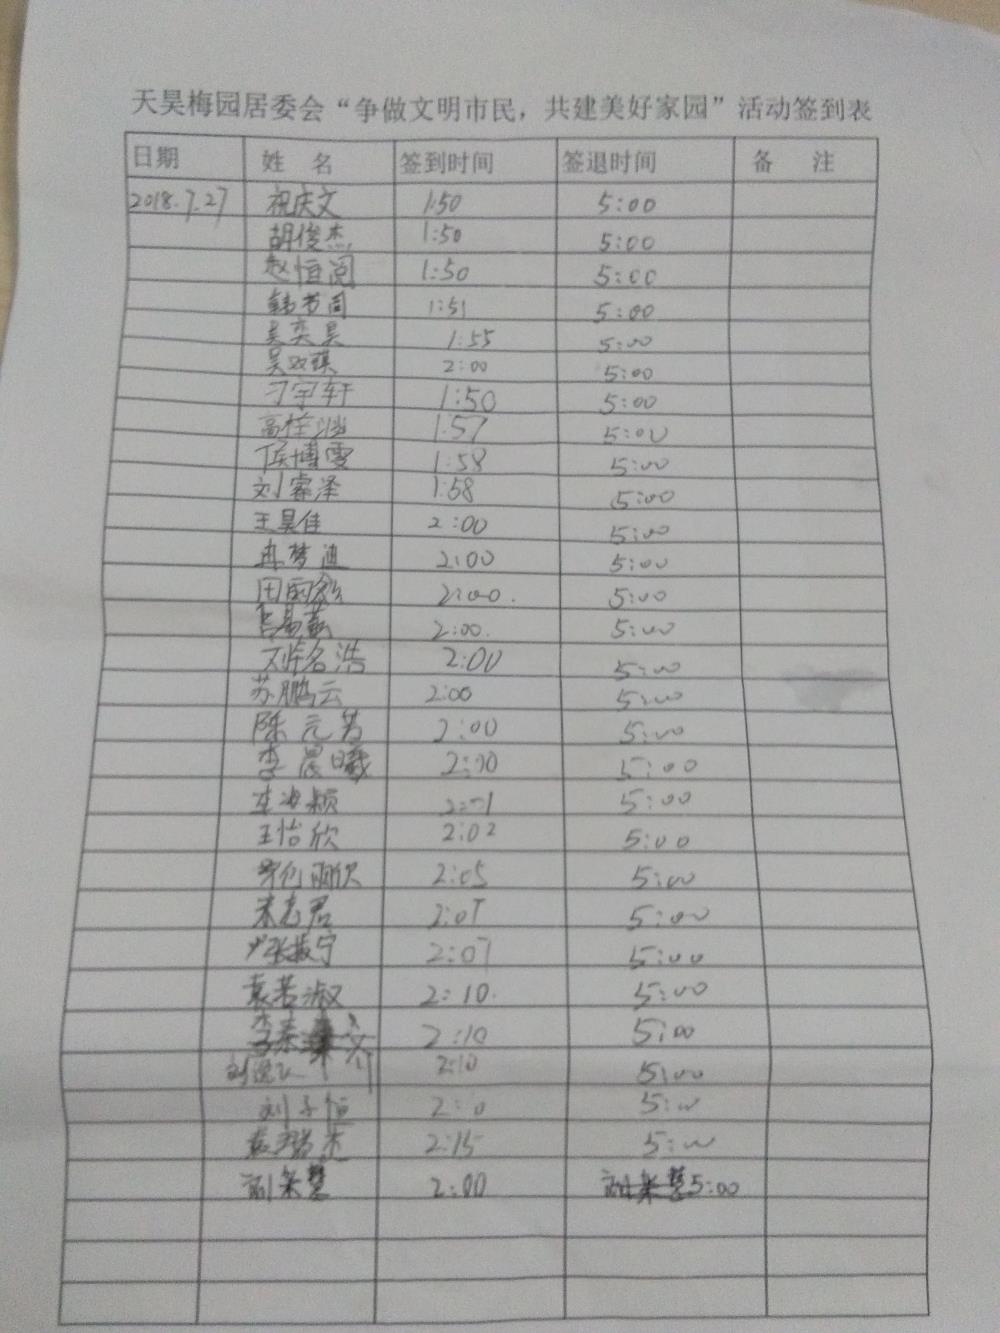 天昊梅园居委会“争做文明市民，共建美好家园”活动签到表
日期 姓 名 签到时间 签退时间 备 注
2018.7.27 祝庆文 1:50 5:00
胡俊杰 1:50 5:00
赵恒阅 1:50 5:00
韩书同 1:51 5:00
吴奕昊 1:55 5:00
吴双琪 2:00 5:00
刁宇轩 1:50 5:00
1:57 5:00
侯博雯 1:58 5:00
刘睿泽 1:58 5:00
王昊佳 2:00 5:00
冉梦迪 2:00 5:00
田雨 2:00. 5:00
2:00. 5:00
名浩 2:00 5:00
苏鹏云 2:00 5:00
陈元芳 2:00 5:00
李晨曦 2:00 5:00
颖 2:01 5:00
王怡欣 2:02 5:00
2:05 5:00
宋志君 2:07 5:00
张振宁 2:07 5:00
袁若淑 2:10. 5:00
李泰文 2:10 5:00
刘 2:10 5:00
刘子恒 5:00
袁瑞杰 2:15 5:00
2:00 5:00